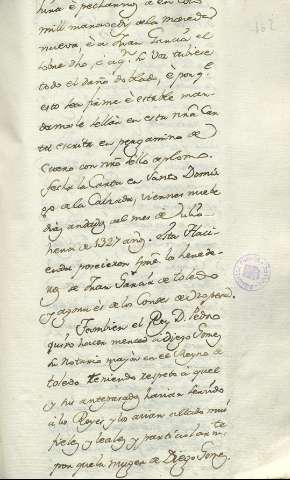 mill maravedis de la moneda
nueva, è a Juan Garcia el
sobre dho, è aq.n su voz tubiere
todo el daño doblado, è porq.e
esto sea firme è estable man
damosle sellar en esta nña Car
ta escrita en pergamino de
Cuero con nño sello aplomo.
fecha la Carta en Santo Domin
go de la Calzada, viernes nuebe
dias andados del mes de Julio
hera de 1327 años. Esta Haci
enda poseieron los herede
ros de Juan Garcia de toledo
y agora es de los Condes de Oropesa.
Tambien el Rey D. Pedro
quiso hacer merced a Diego Gomez
su Notario mayor en el Reyno de
toledo teniendo respeto a quel
y sus antepasados havian servido
a los Reyes y los avian allado mui
fieles y leales y particularm.te
por que la muger de Diego Gomez